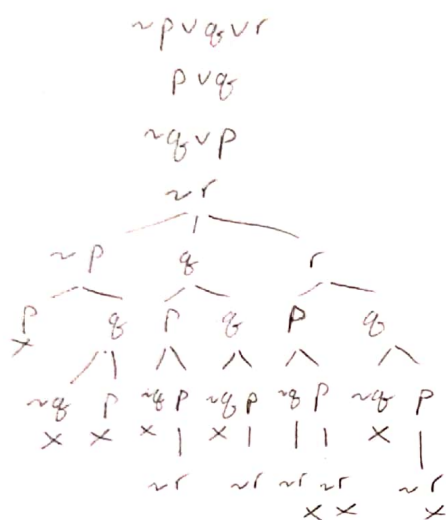 ~p∨q∨r
p∨q
~q∨p
~r
~p q r
p q p q p q
×
~q p ~q p ~q p ~q p ~q p
× × × × ×
~r ~r ~r ~r ~r
× × ×